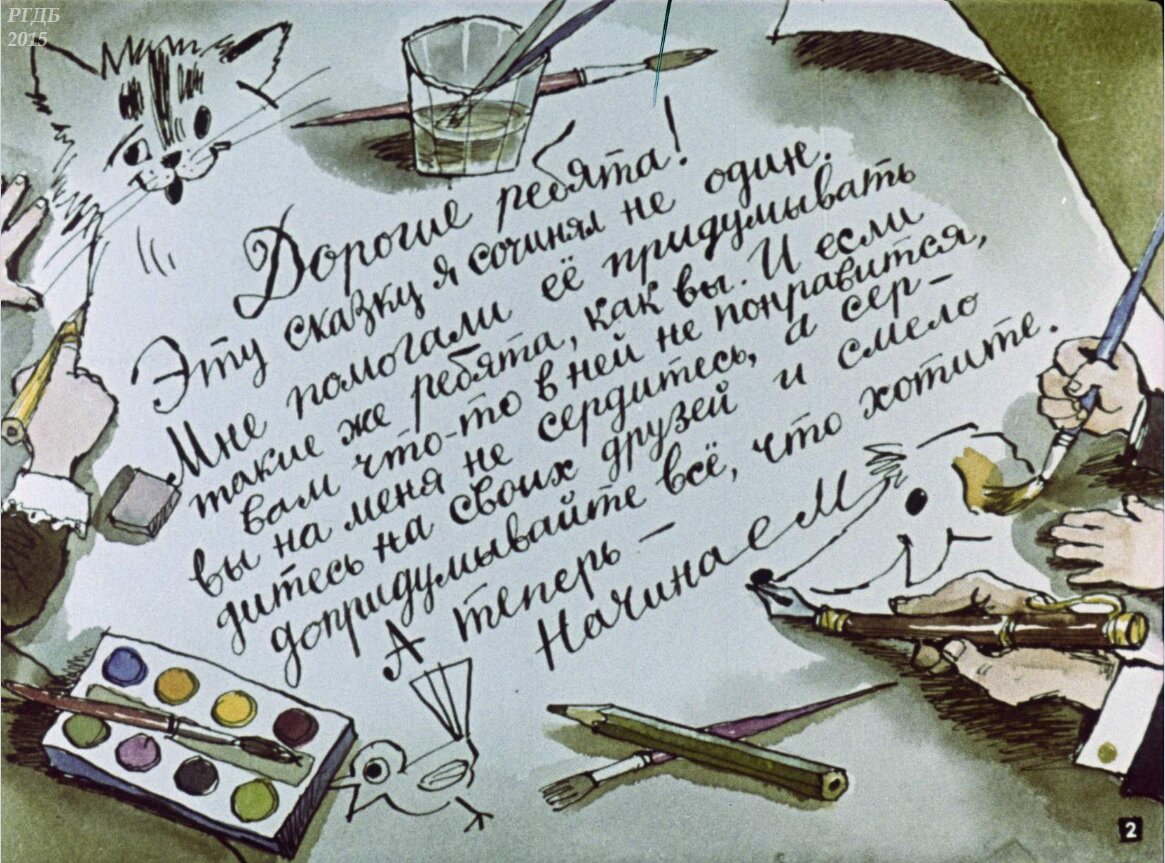 РГДБ
2015
Дорогие ребята!
Эту сказку я сочинял не один.
Мне помогали её придумывать
такие же ребята, как вы. И если
вам что-то в ней не понравится,
вы на меня не сердитесь, а сер-
дитесь на своих друзей и смело
допридумывайте всё, что хотите.
А теперь —
Начинаем
2